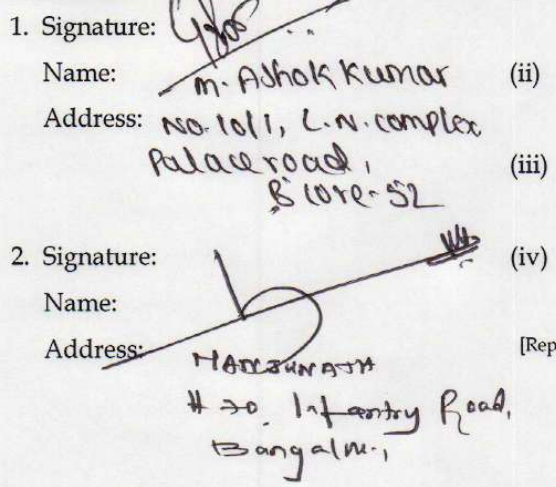 1. Signature:
Name: M. Ashok Kumar (ii)
Address: No. 10/1, L.N. complex
Palace road, (iii)
B'lore-52
2. Signature: (iv)
Name:
Address: [Rep
MANJUNATH
# 70. Infantry Road,
Bangalore,